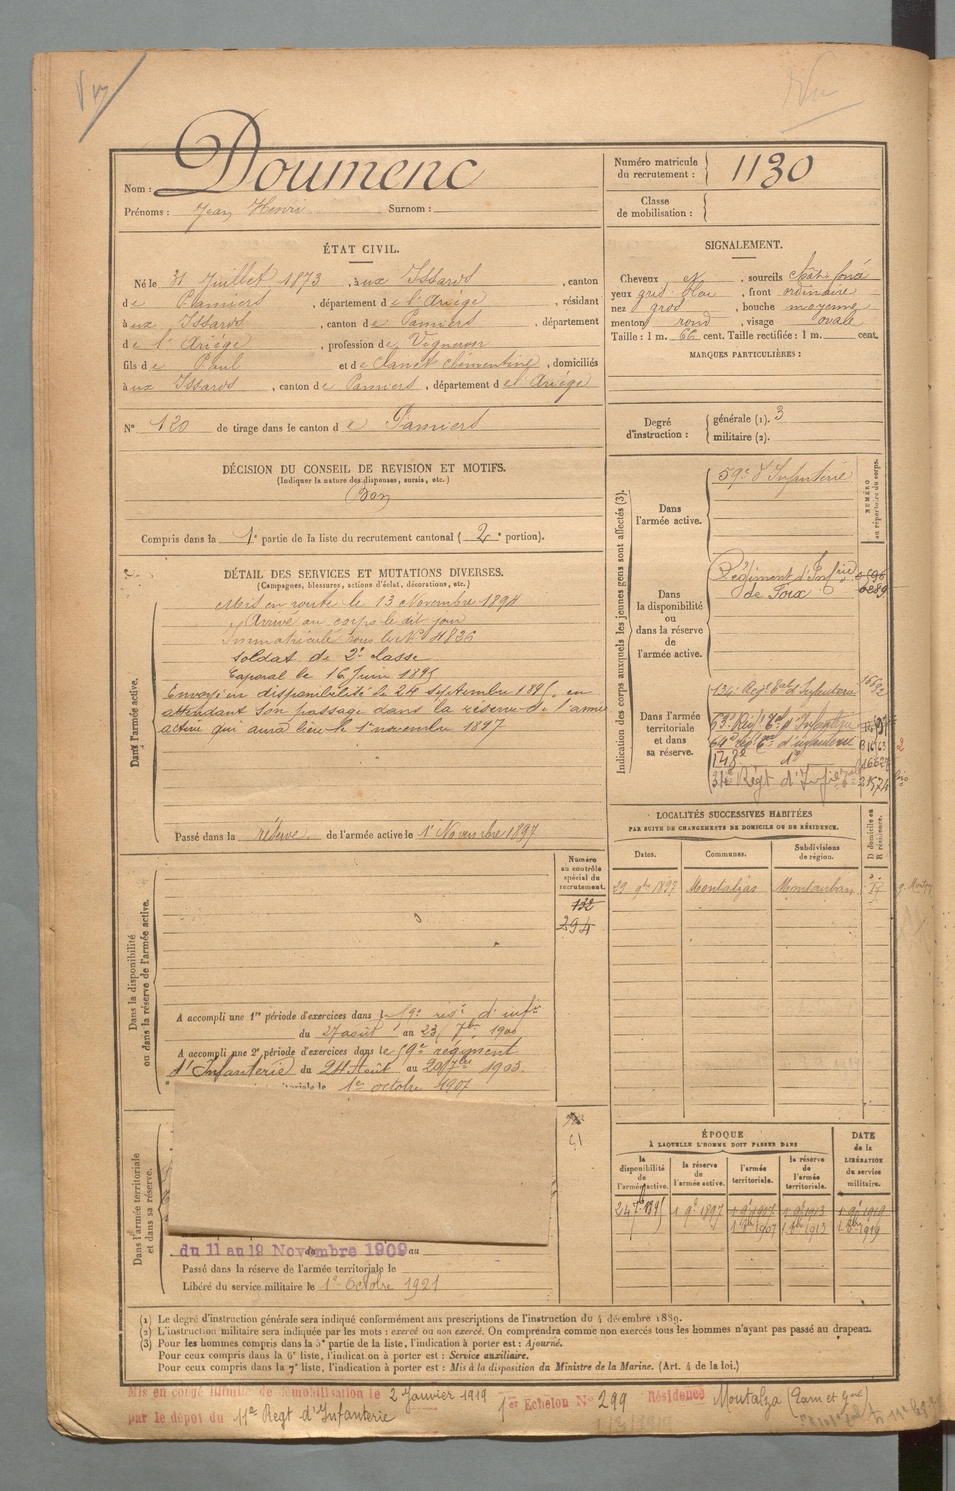 Nom : Doumenc
Prénoms : Jean Henri Surnom :
Numéro matricule du recrutement : 1130
Classe de mobilisation :
ÉTAT CIVIL.
Né le 31 Juillet 1873, à ux Issards, canton
de Pamiers, département de l'Ariège, résidant
à ux Issards, canton de Pamiers, département
de l'Ariège, profession de Vigneron
fils de Paul et de Canet Clémentine, domiciliés
à ux Issards, canton de Pamiers, département de l'Ariège
N° 120 de tirage dans le canton de Pamiers
SIGNALEMENT.
Cheveux N, sourcils chât. foncé
yeux gris bleu, front ordinaire
nez gros, bouche moyenne
menton rond, visage ovale
Taille : 1 m. 66 cent. Taille rectifiée : 1 m. cent.
MARQUES PARTICULIÈRES :
Degré d'instruction : générale (1). 3
militaire (2).
DÉCISION DU CONSEIL DE REVISION ET MOTIFS.
(Indiquer la nature des dispenses, sursis, etc.)
Bon
Compris dans la 1e partie de la liste du recrutement cantonal (2e portion).
DÉTAIL DES SERVICES ET MUTATIONS DIVERSES.
(Campagnes, blessures, actions d'éclat, décorations, etc.)
Dans l'armée active.
Mis en route le 13 Novembre 1894
Arrivé au corps le dit jour
Immatriculé sous le N° 4836
soldat de 2e classe
Caporal le 16 Juin 1895
Envoyé en disponibilité le 24 septembre 1895, en
attendant son passage dans la réserve de l'armée
active qui aura lieu le 1er novembre 1897
Passé dans la réserve de l'armée active le 1er Novembre 1897
Indication des corps auxquels les jeunes gens sont affectés (3).
NUMÉRO au répertoire du corps.
Dans l'armée active.
59e d'Infanterie
Dans la disponibilité ou dans la réserve de l'armée active.
Régiment d'Infie
de Foix
Dans l'armée territoriale et dans sa réserve.
134e Regt Eal d'Infanterie
63e Regt Eal d'Infanterie
64e Regt d'infanterie
148e do
31e Régt d'Infie
LOCALITÉS SUCCESSIVES HABITÉES
PAR SUITE DE CHANGEMENTS DE DOMICILE OU DE RÉSIDENCE.
Dates. Communes. Subdivisions de région. D domicile ou R résidence.
29 9bre 1897 Montalzat Montauban
Dans la disponibilité ou dans la réserve de l'armée active.
Numéro au contrôle spécial du recrutement.
132
294
A accompli une 1re période d'exercices dans le 59e régt d'infie
du 27 août au 23 7bre 1900
A accompli une 2e période d'exercices dans le 59e régiment
d'Infanterie du 24 Août au 20 7bre 1903
toriale le 1er octobre 1907
Dans l'armée territoriale et dans sa réserve.
du 11 au 19 Novembre 1909 au
Passé dans la réserve de l'armée territoriale le
Libéré du service militaire le 1er Octobre 1921
ÉPOQUE
À LAQUELLE L'HOMME DOIT PASSER DANS
la disponibilité de l'armée active. la réserve de l'armée active. l'armée territoriale. la réserve de l'armée territoriale.
DATE de la LIBÉRATION du service militaire.
24 7bre 1895 1 9e 1897 1 9e 1907 1 9e 1913 1 9e 1919
1 8bre 1907 1 8bre 1913 1 8bre 1919
(1) Le degré d'instruction générale sera indiqué conformément aux prescriptions de l'instruction du 4 décembre 1889.
(2) L'instruction militaire sera indiquée par les mots : exercé ou non exercé. On comprendra comme non exercés tous les hommes n'ayant pas passé au drapeau.
(3) Pour les hommes compris dans la 5e partie de la liste, l'indication à porter est : Ajourné.
Pour ceux compris dans la 6e liste, l'indication à porter est : Service auxiliaire.
Pour ceux compris dans la 7e liste, l'indication à porter est : Mis à la disposition du Ministre de la Marine. (Art. 4 de la loi.)
Mis en congé illimité de démobilisation le 2 Janvier 1919 1er Echelon N° 299 Résidence Montalza (Tarn et Gne)
par le dépôt du 11e Regt d'Infanterie